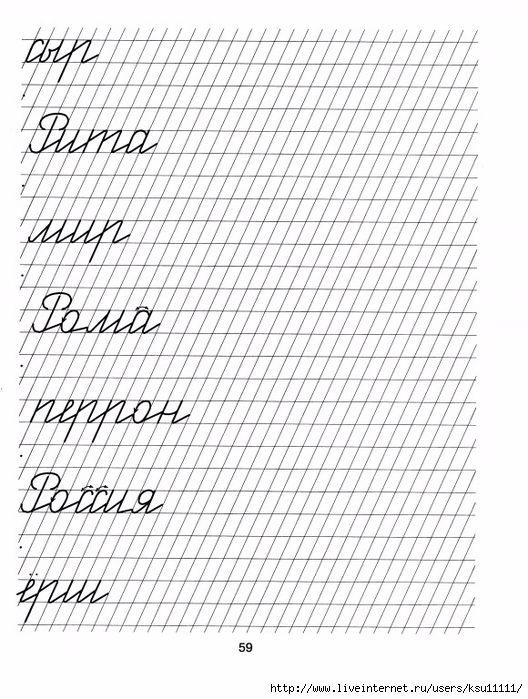 сыр
Рита
мир
Рома
перрон
Россия
ёрш
59
http://www.liveinternet.ru/users/ksu11111/